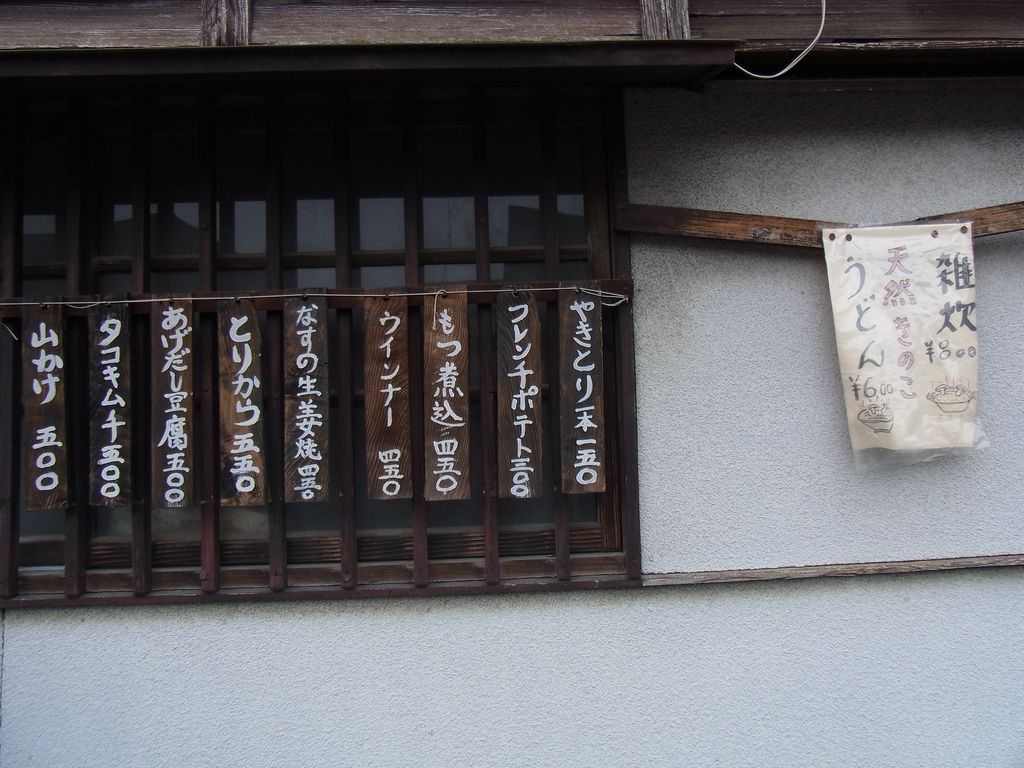 雑炊
¥800
天然きのこ
うどん
¥600
やきとり一本 一五〇
フレンチポテト 三〇〇
もつ煮込 四五〇
ウインナー 四五〇
なすの生姜焼 四五〇
とりから 五五〇
あげだし豆腐 五〇〇
タコキムチ 五〇〇
山かけ 五〇〇